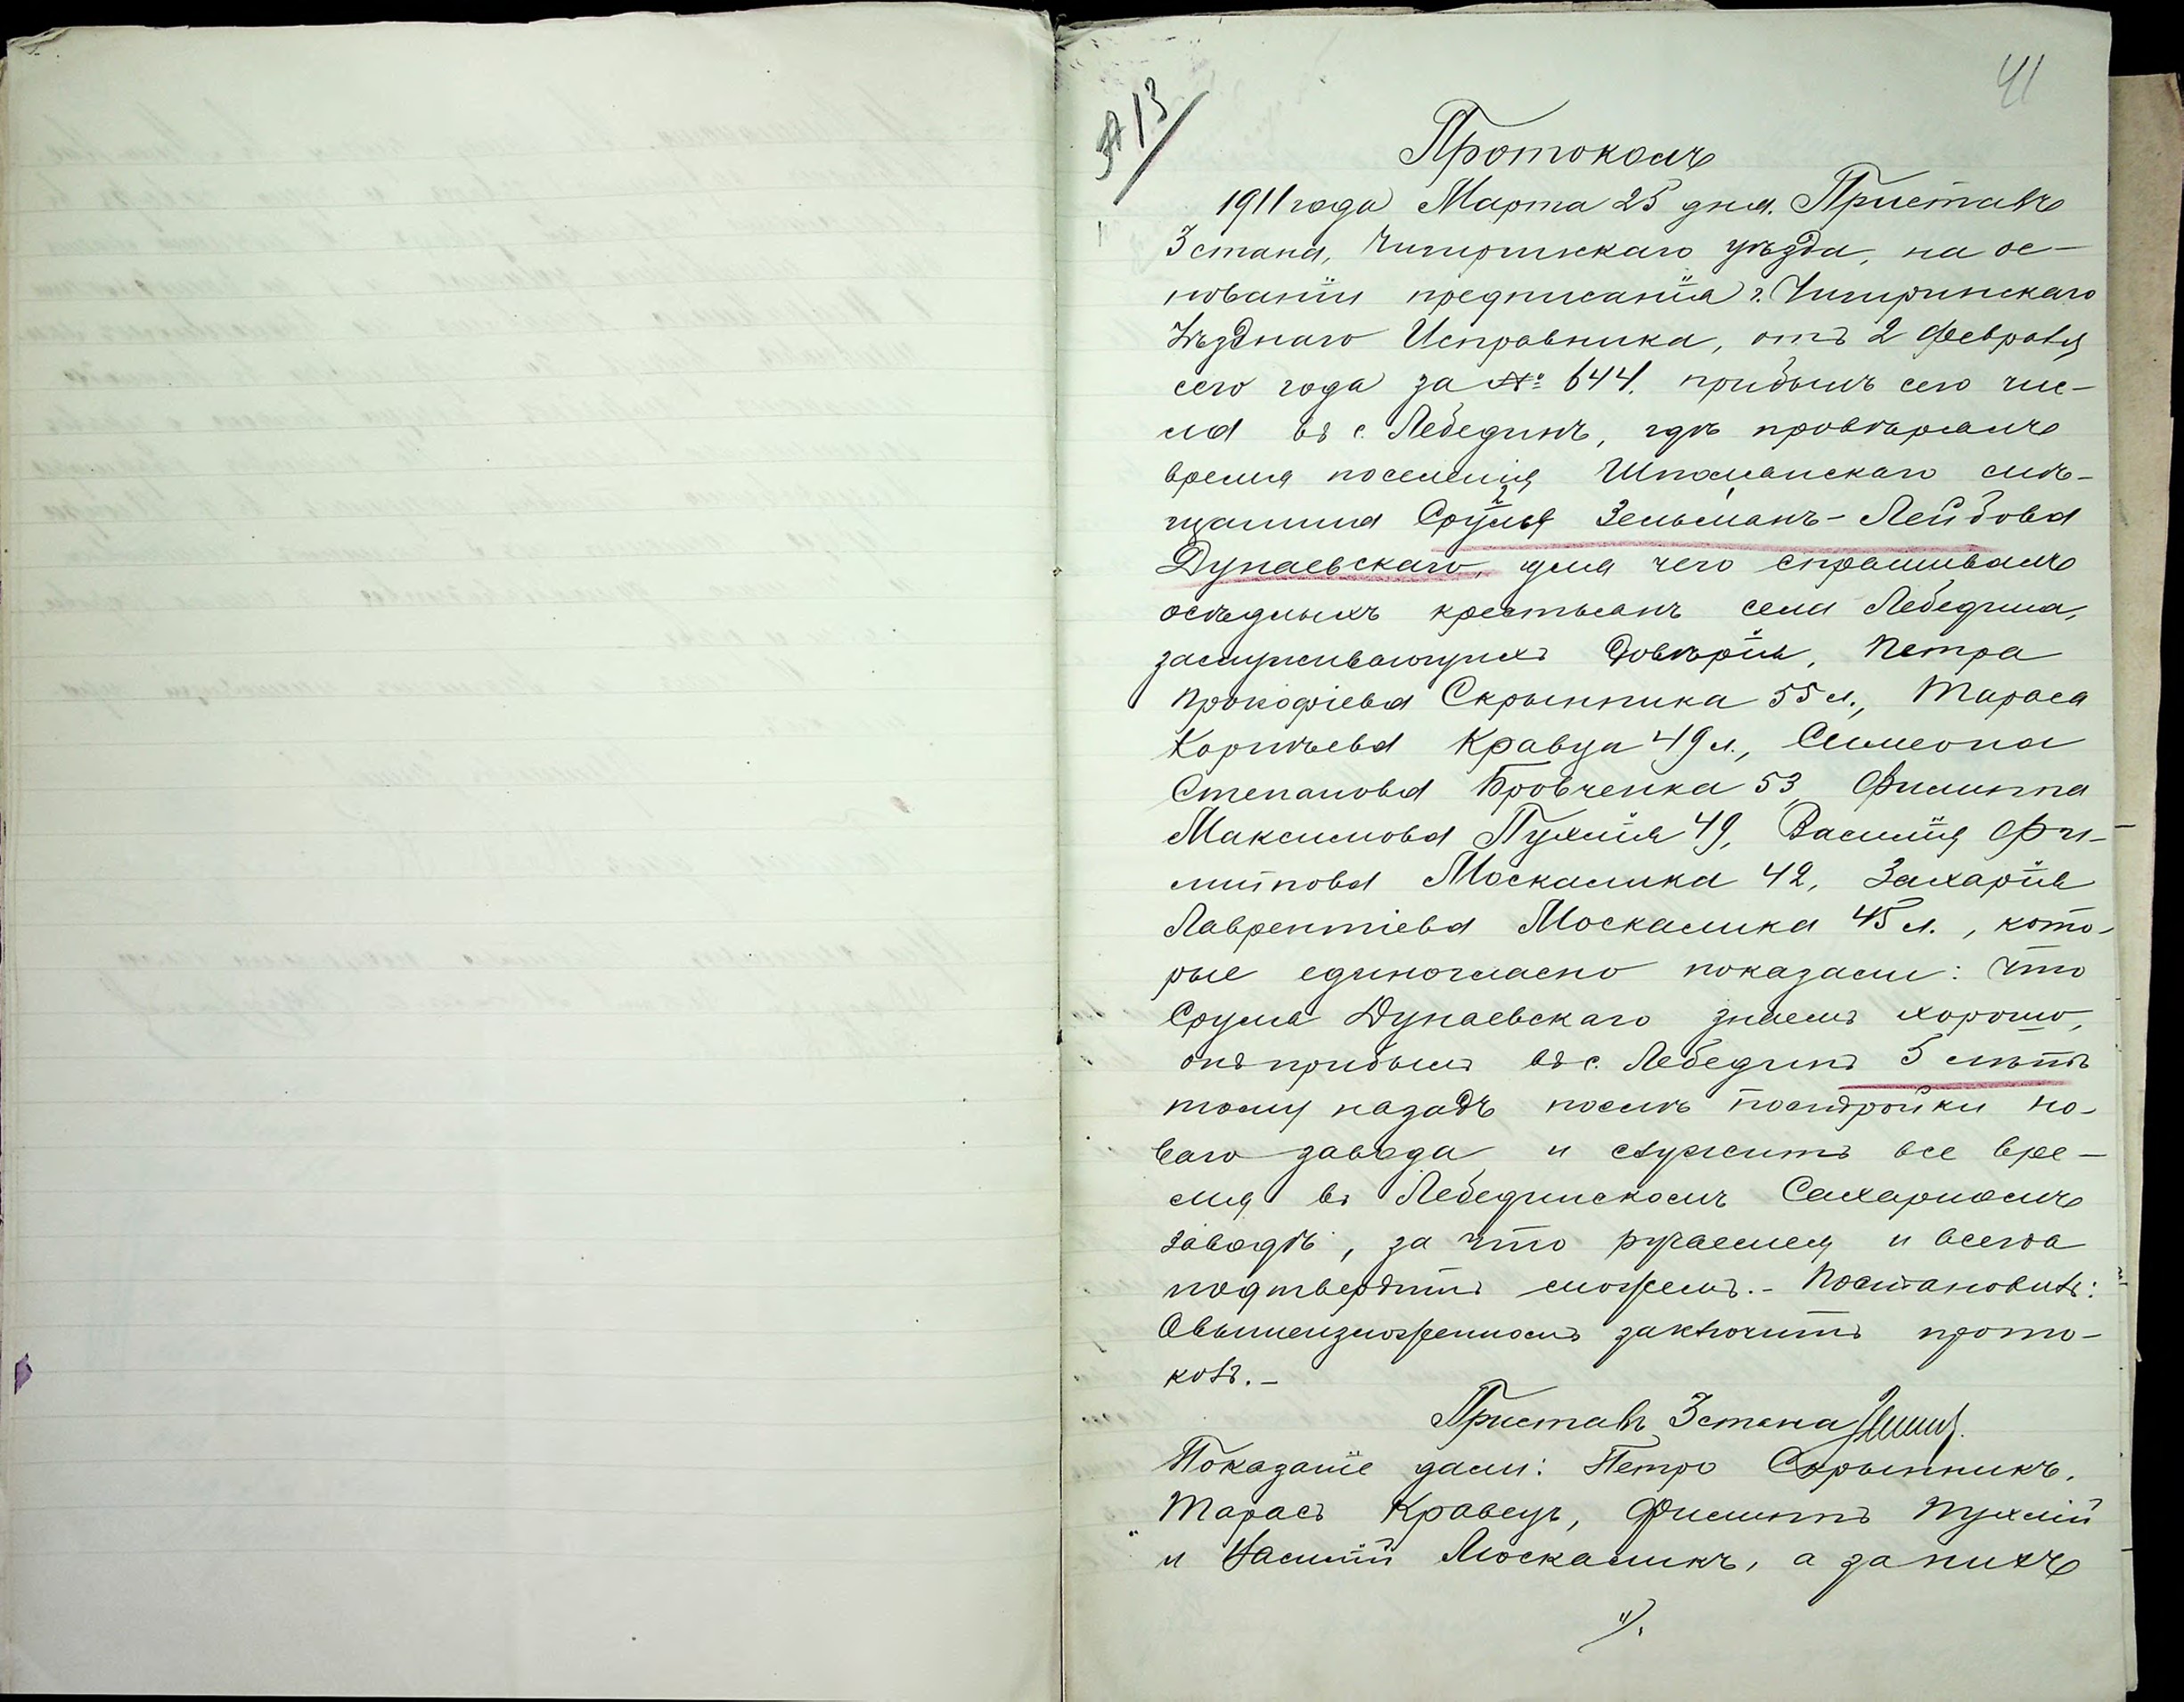 41
№ 13
Протоколъ
1911 года Марта 25 дня. Приставъ
3 стана, Чигиринскаго уѣзда, на ос-
нованіи предписанія г. Чигиринскаго
Уѣзднаго Исправника, отъ 2 февраля
сего года за № 644. прибылъ сего чис-
ла въ с. Лебединъ, гдѣ провѣрялъ
время поселенія Шполянскаго мѣ-
щанина Сруля Зельманъ-Лейбова
Дунаевскаго, для чего спрашивалъ
осѣдлыхъ крестьянъ села Лебедина,
заслуживающихъ довѣрія, Петра
Прокофіева Скрынника 55 л., Тараса
Корнѣева Кравца 49 л., Симеона
Степанова Бровченка 53, Филиппа
Максимова Пухлія 49, Василія Фи-
липова Москалика 42, Захарія
Лаврентіева Москалика 45 л., кото-
рые единогласно показали: что
Сруля Дунаевскаго знаемъ хорошо,
онъ прибылъ въ с. Лебединъ 5 лѣтъ
тому назадъ послѣ постройки но-
ваго завода и служитъ все вре-
мя въ Лебединскомъ Сахарномъ
заводѣ, за что ручаемся и всегда
подтвердить можемъ.- Постановилъ:
О вышеизложенномъ заключить прото-
колъ.-
Приставъ 3 стана
Показаніе дали: Петро Скрынникъ,
Тарасъ Кравецъ, Филиппъ Пухлій
и Василій Москаликъ, а за нихъ